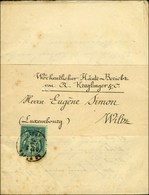 Wöchentlicher Häute-Bericht
von A. Kruglinger & Cº
Herrn Eugène Simon
(Luxembourg) Wiltz